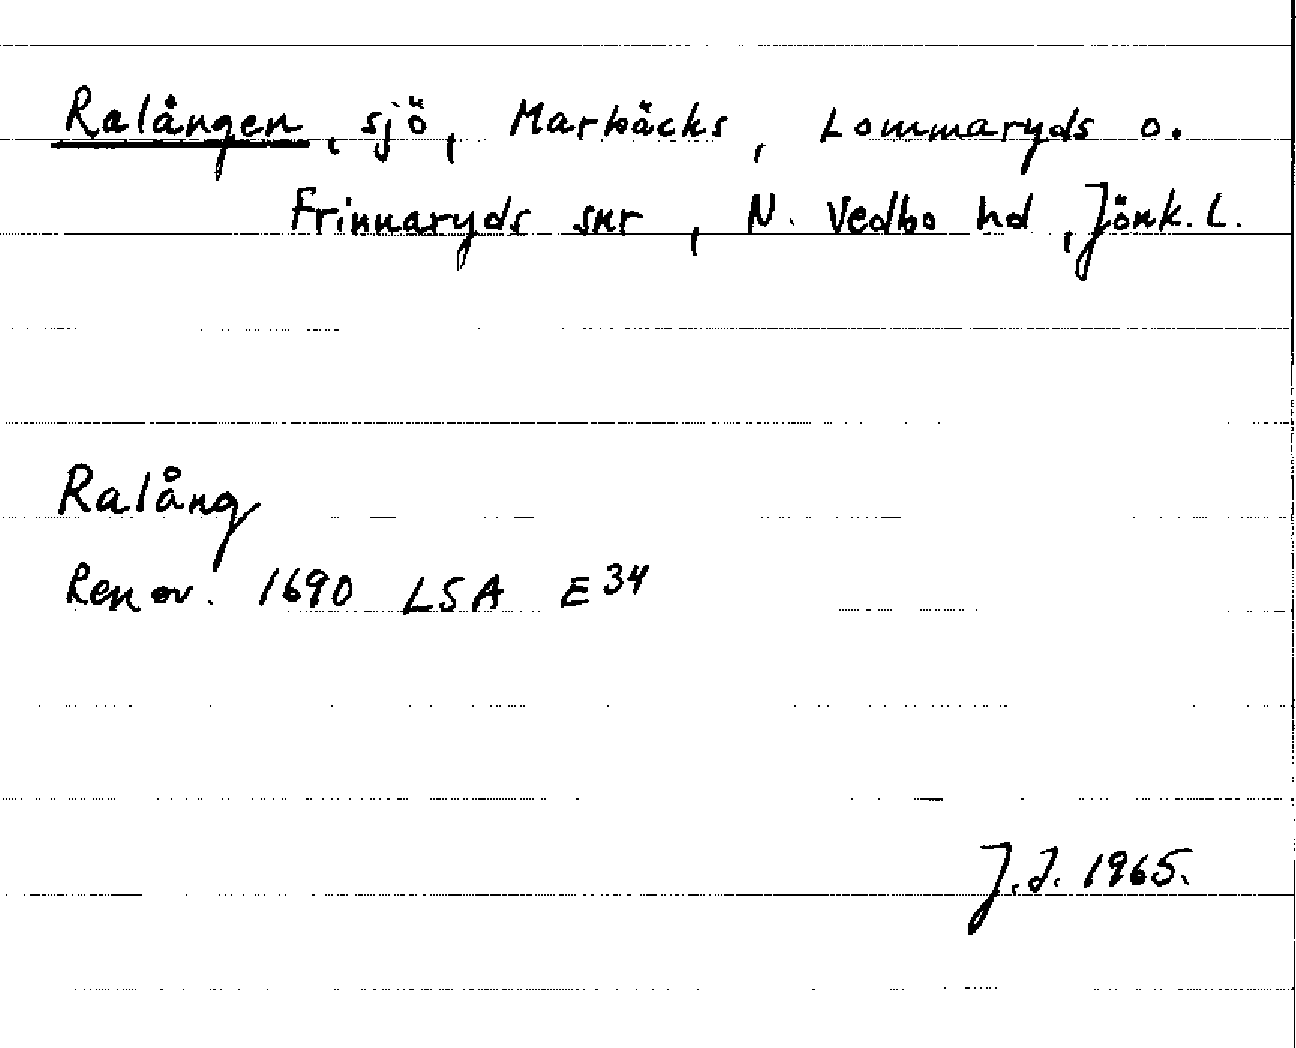 Ralången, sjö, Marbäcks, Lommaryds o.
Frinnaryds snr, N. Vedbo hd, Jönk. L.
Ralång
Renov. 1690 LSA E 34
J.J. 1965.